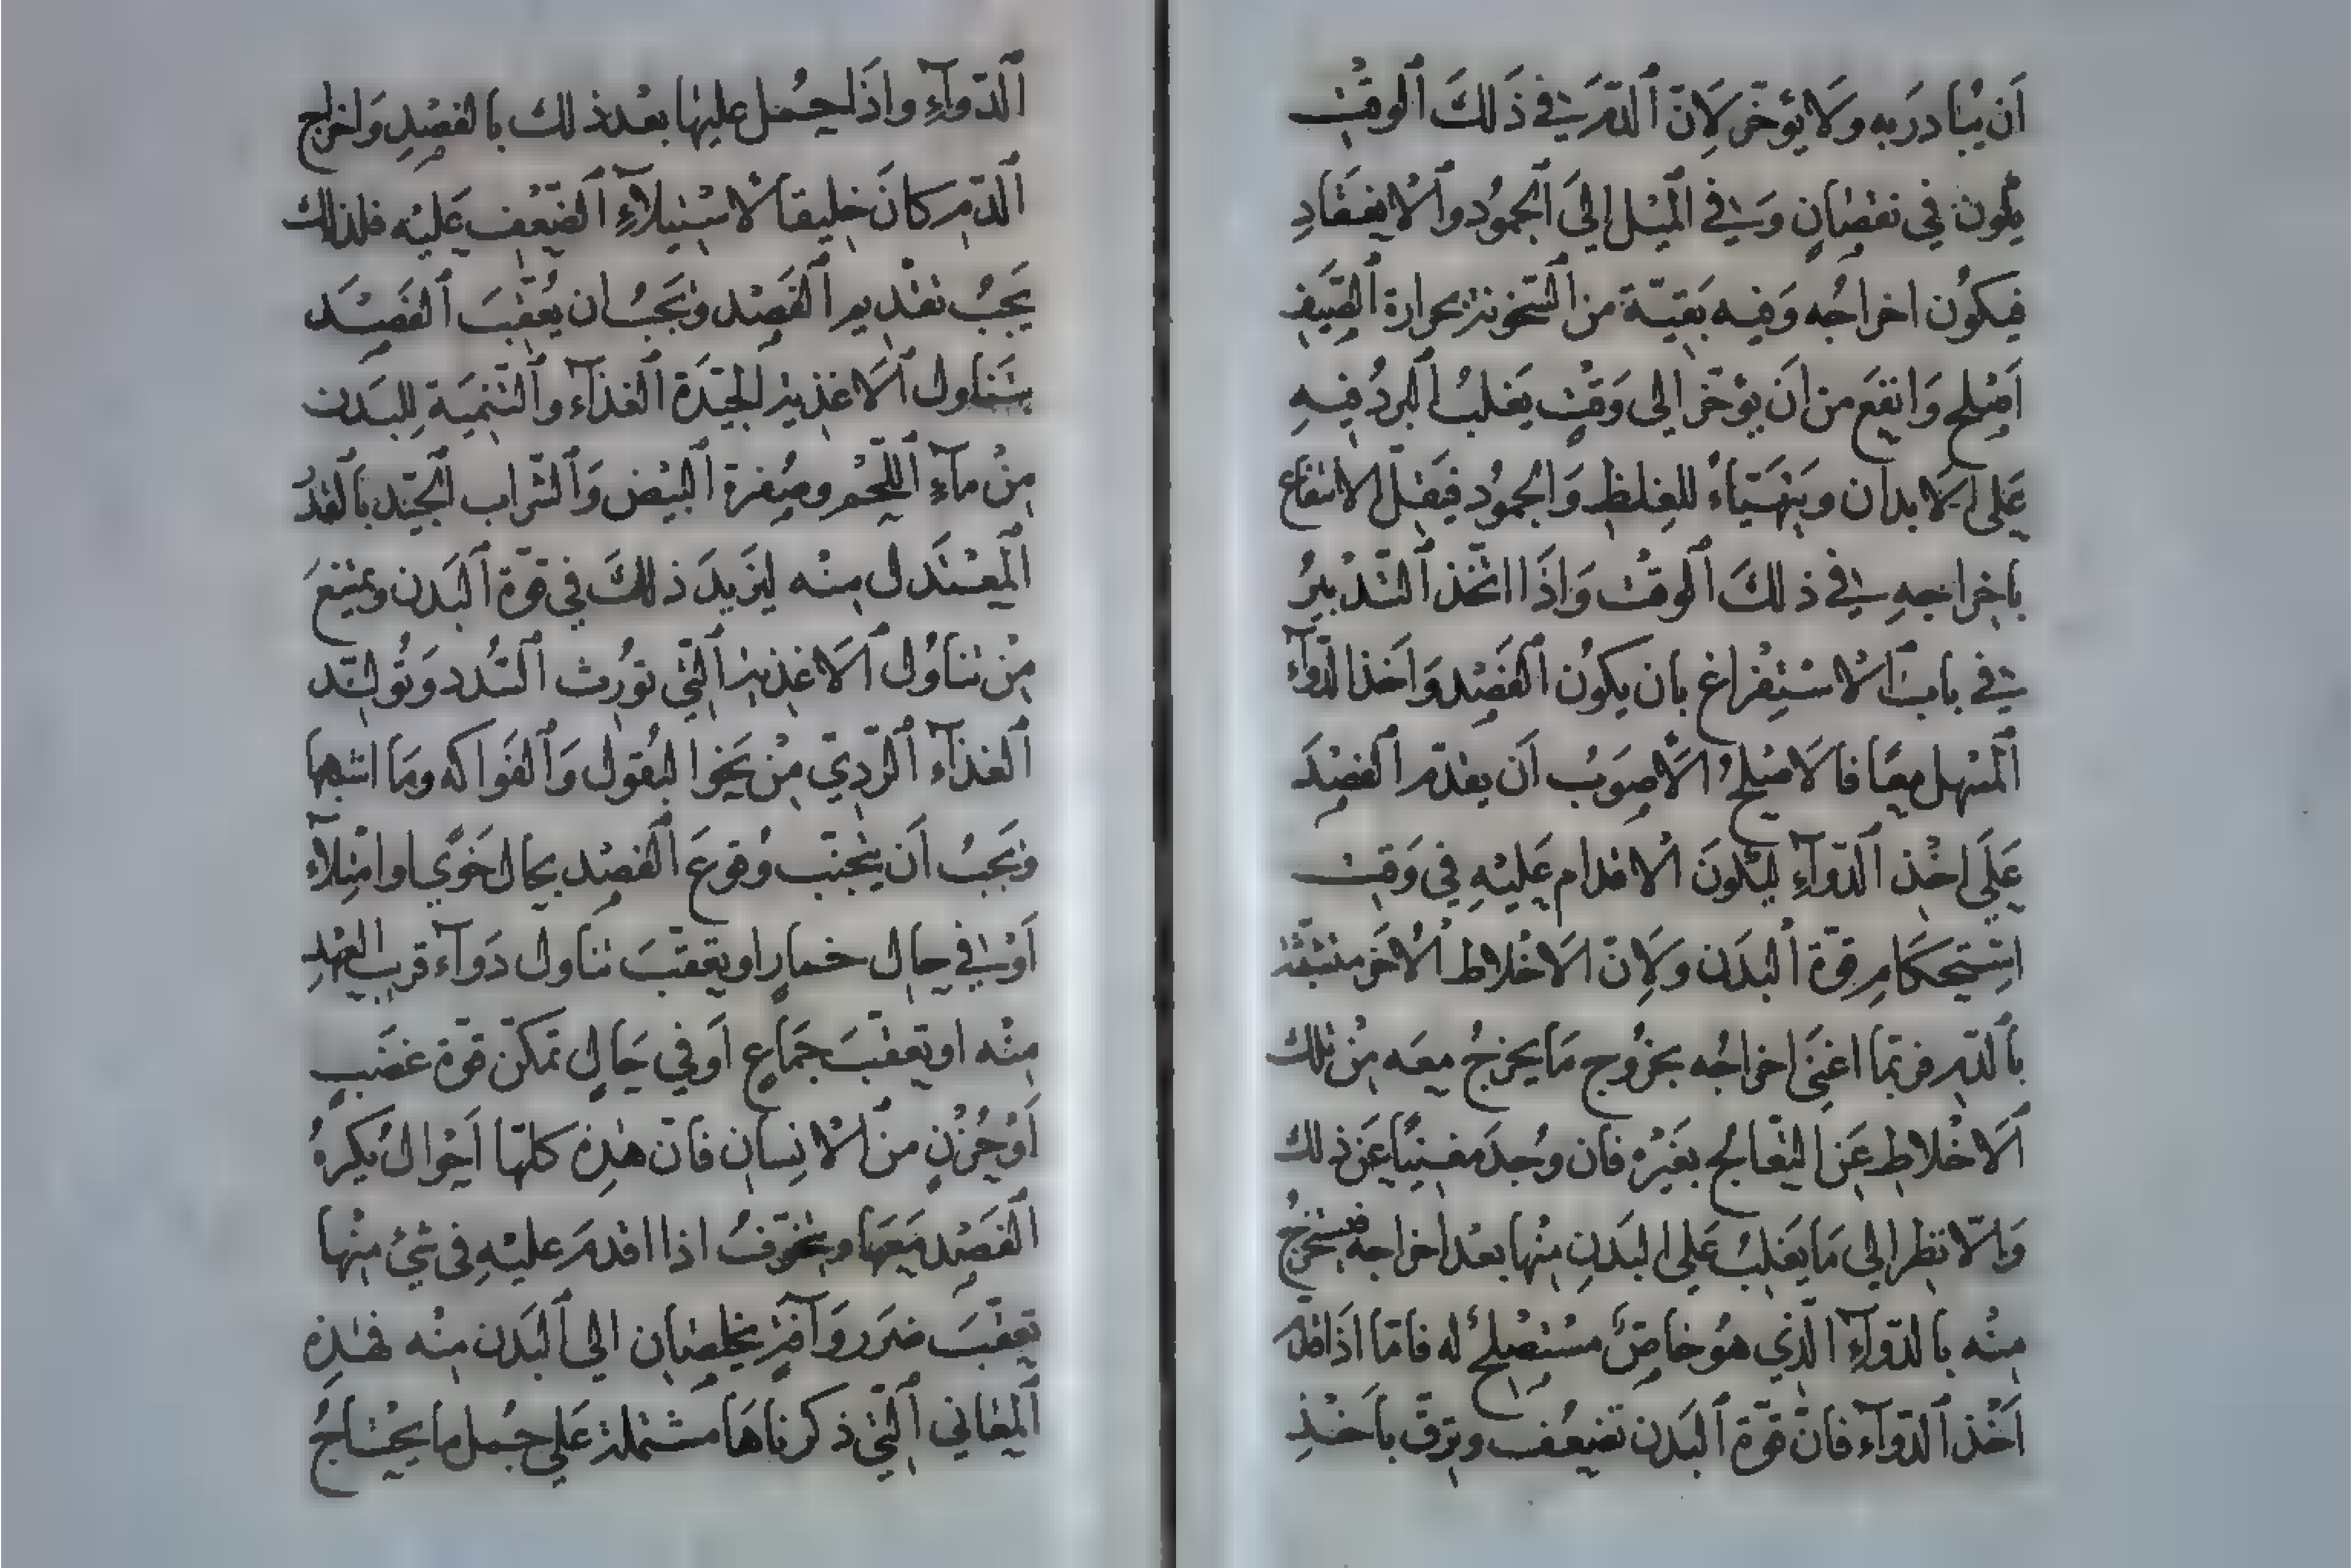 أَن يُبَادرَ به وَلَا يؤخّر لِأَنّ ٱلدّمَ في ذَلكَ ٱلوقتْ
يكون في نقصَانٍ وَفي المَيْل إلىَ ٱلجمُود وٱلانعقَادِ
فيكوُن اخراجُه وَفيه بَقيّة من ٱلسّخونة بحرارة ٱلصّيفِ
أَصْلح وَانفعَ من أَن يؤخّر الى وَقتْ يَغلبُ ٱلبردُ فيهِ
عَلى ٱلَابدان ويَتهَيّاءُ للغِلظِ وَالجمُود فيَقلّ الانتفاع
باخراجهِ في ذلكَ ٱلوقتْ وَاذَا اتّخذ ٱلتّدْبيرُ
في باب ٱلاسْتِفْراغ بان يكوُن ٱلفَصْد وَاَخذ الدّوآء
ٱلمسْهل معًا فالاَصْلحُ الْأَصوَبُ أَن يقدّم ٱلفصْدَ
عَلَى اخْذ ٱلدّوآءِ ليَكونَ ٱلاقدام عَليْهِ في وَقتْ
اسْتحكَامِ قوّة ٱلبدَن ولِانّ الَاخْلاط ٱلاخَر متشبّثة
بٱلدّم فربّما اغنَى اخراجُه بخرُوج مَا يخرجُ معَه مِنْ تلك
ٱلَاخْلاطِ عَن التعَالج بغَيْرْه فان وُجدَ مغنيًا عَن ذلك
وَالّا نظر الى مَا يغلبُ عَلى البَدَنِ منْها بعْد اخراجه فيستخرجُ
منْه بالدّوآءِ الّذي هُو خاصّ مسْتصْلحٌ له فامّا اذَا قدّم
أَخْذ ٱلدّوآء فانّ قوّة ٱلبدَن تضعُف وترقّ بأَخْذِ
ٱلدّوآءِ واذَا حُمل عليهَا بعْد ذلك بالفصْدِ وَاخراج
ٱلدّم كانَ خليقا لاسْتيلآءِ ٱلضّعْف عَليْه فلذلك
يَجبُ تقدْيم ٱلفَصْد ويَجبُ ان يُعقّبَ ٱلفَصْد
بتَناول ٱلَاغذية الجيّدَة ٱلغذآء وٱلتّنميَة لِلبَدن
مِنْ مآءِ ٱللّحْم وصُفرة ٱلبيْض وَٱلشّراب ٱلجيّد بٱلقدْر
ٱلمعْتَدل منْه ليَزيدَ ذلكَ في قوّة ٱلبَدن ويمتنعَ
مِنْ تناوُل ٱلَاغذية ٱلتي توُرث ٱلسُّدد وَتُولّد
ٱلغذآء ٱلرّديّ مِنْ نَحو البُقول وَٱلفَواكه ومَا اشبهها
ويَجبُ أَن يتجنّب وُقوعَ ٱلفصْد بحَال خَوًى او امْتلآء
أَوْ في حال خمارٍ او بعَقبَ تنَاول دَوآء قريب العهْدِ
منْه او بعَقبَ جمَاعٍ أَو في حَالِ تمكّن قوّة غضَبٍ
أَوْ حُزْنٍ منَ ٱلْانسان فانّ هٰذِه كلهّا أَحْوالٌ يُكرهُ
ٱلفَصْد مَعَها ويتخوّفُ اذا اقدمَ عليْهِ في شَيْءٍ منْها
بعَقبَ ضرَر وَآفةٍ يخلصَان الى ٱلبَدن منْه فهٰذِه
ٱلمعَاني ٱلّتي ذكرنَاهَا مشتملة عَلى جُمل ما يحْتاجُ